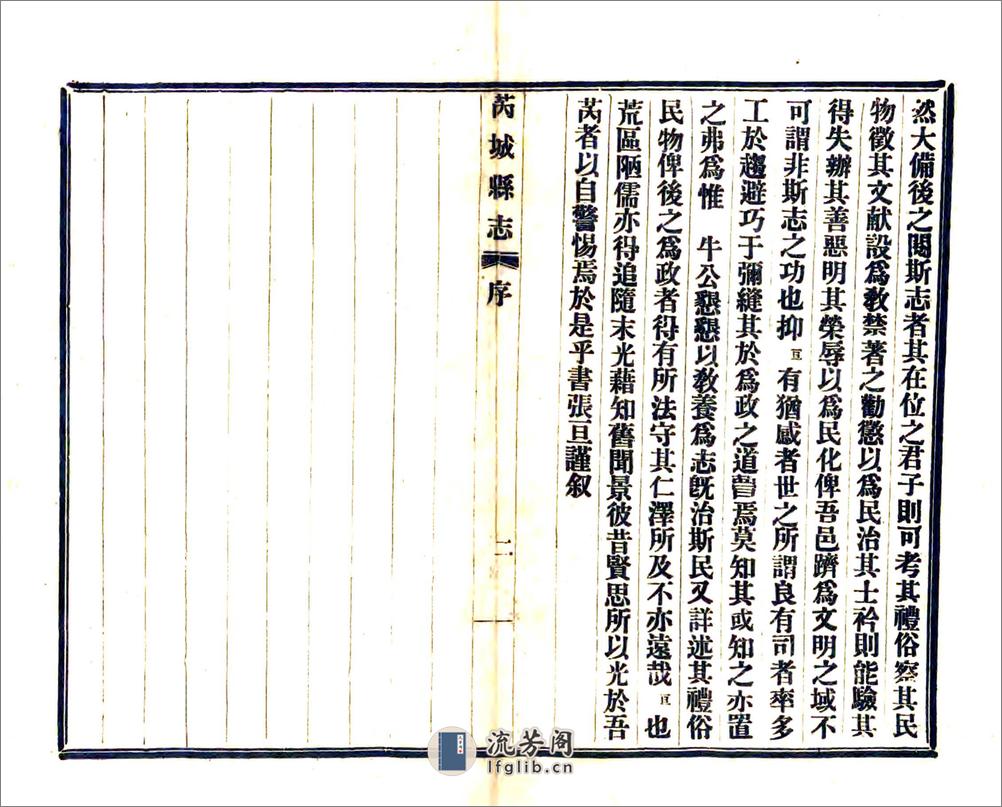 然大備後之閱斯志者其在位之君子則可考其禮俗察其民
物徵其文献設爲敎禁著之勸懲以爲民治其士衿則能驗其
得失辦其善惡明其榮辱以爲民化俾吾邑躋爲文明之域不
可謂非斯志之功也抑亘有猶慼者世之所謂良有司者率多
工於趨避巧于彌縫其於爲政之道瞢焉莫知其或知之亦置
之弗爲惟 牛公懇懇以敎養爲志旣治斯民又詳述其禮俗
民物俾後之爲政者得有所法守其仁澤所及不亦遠哉亘也
荒區陋儒亦得追隨末光藉知舊聞景彼昔賢思所以光於吾
芮者以自警惕焉於是乎書張亘謹叙
芮城縣志 序 二
流芳阁
lfglib.cn